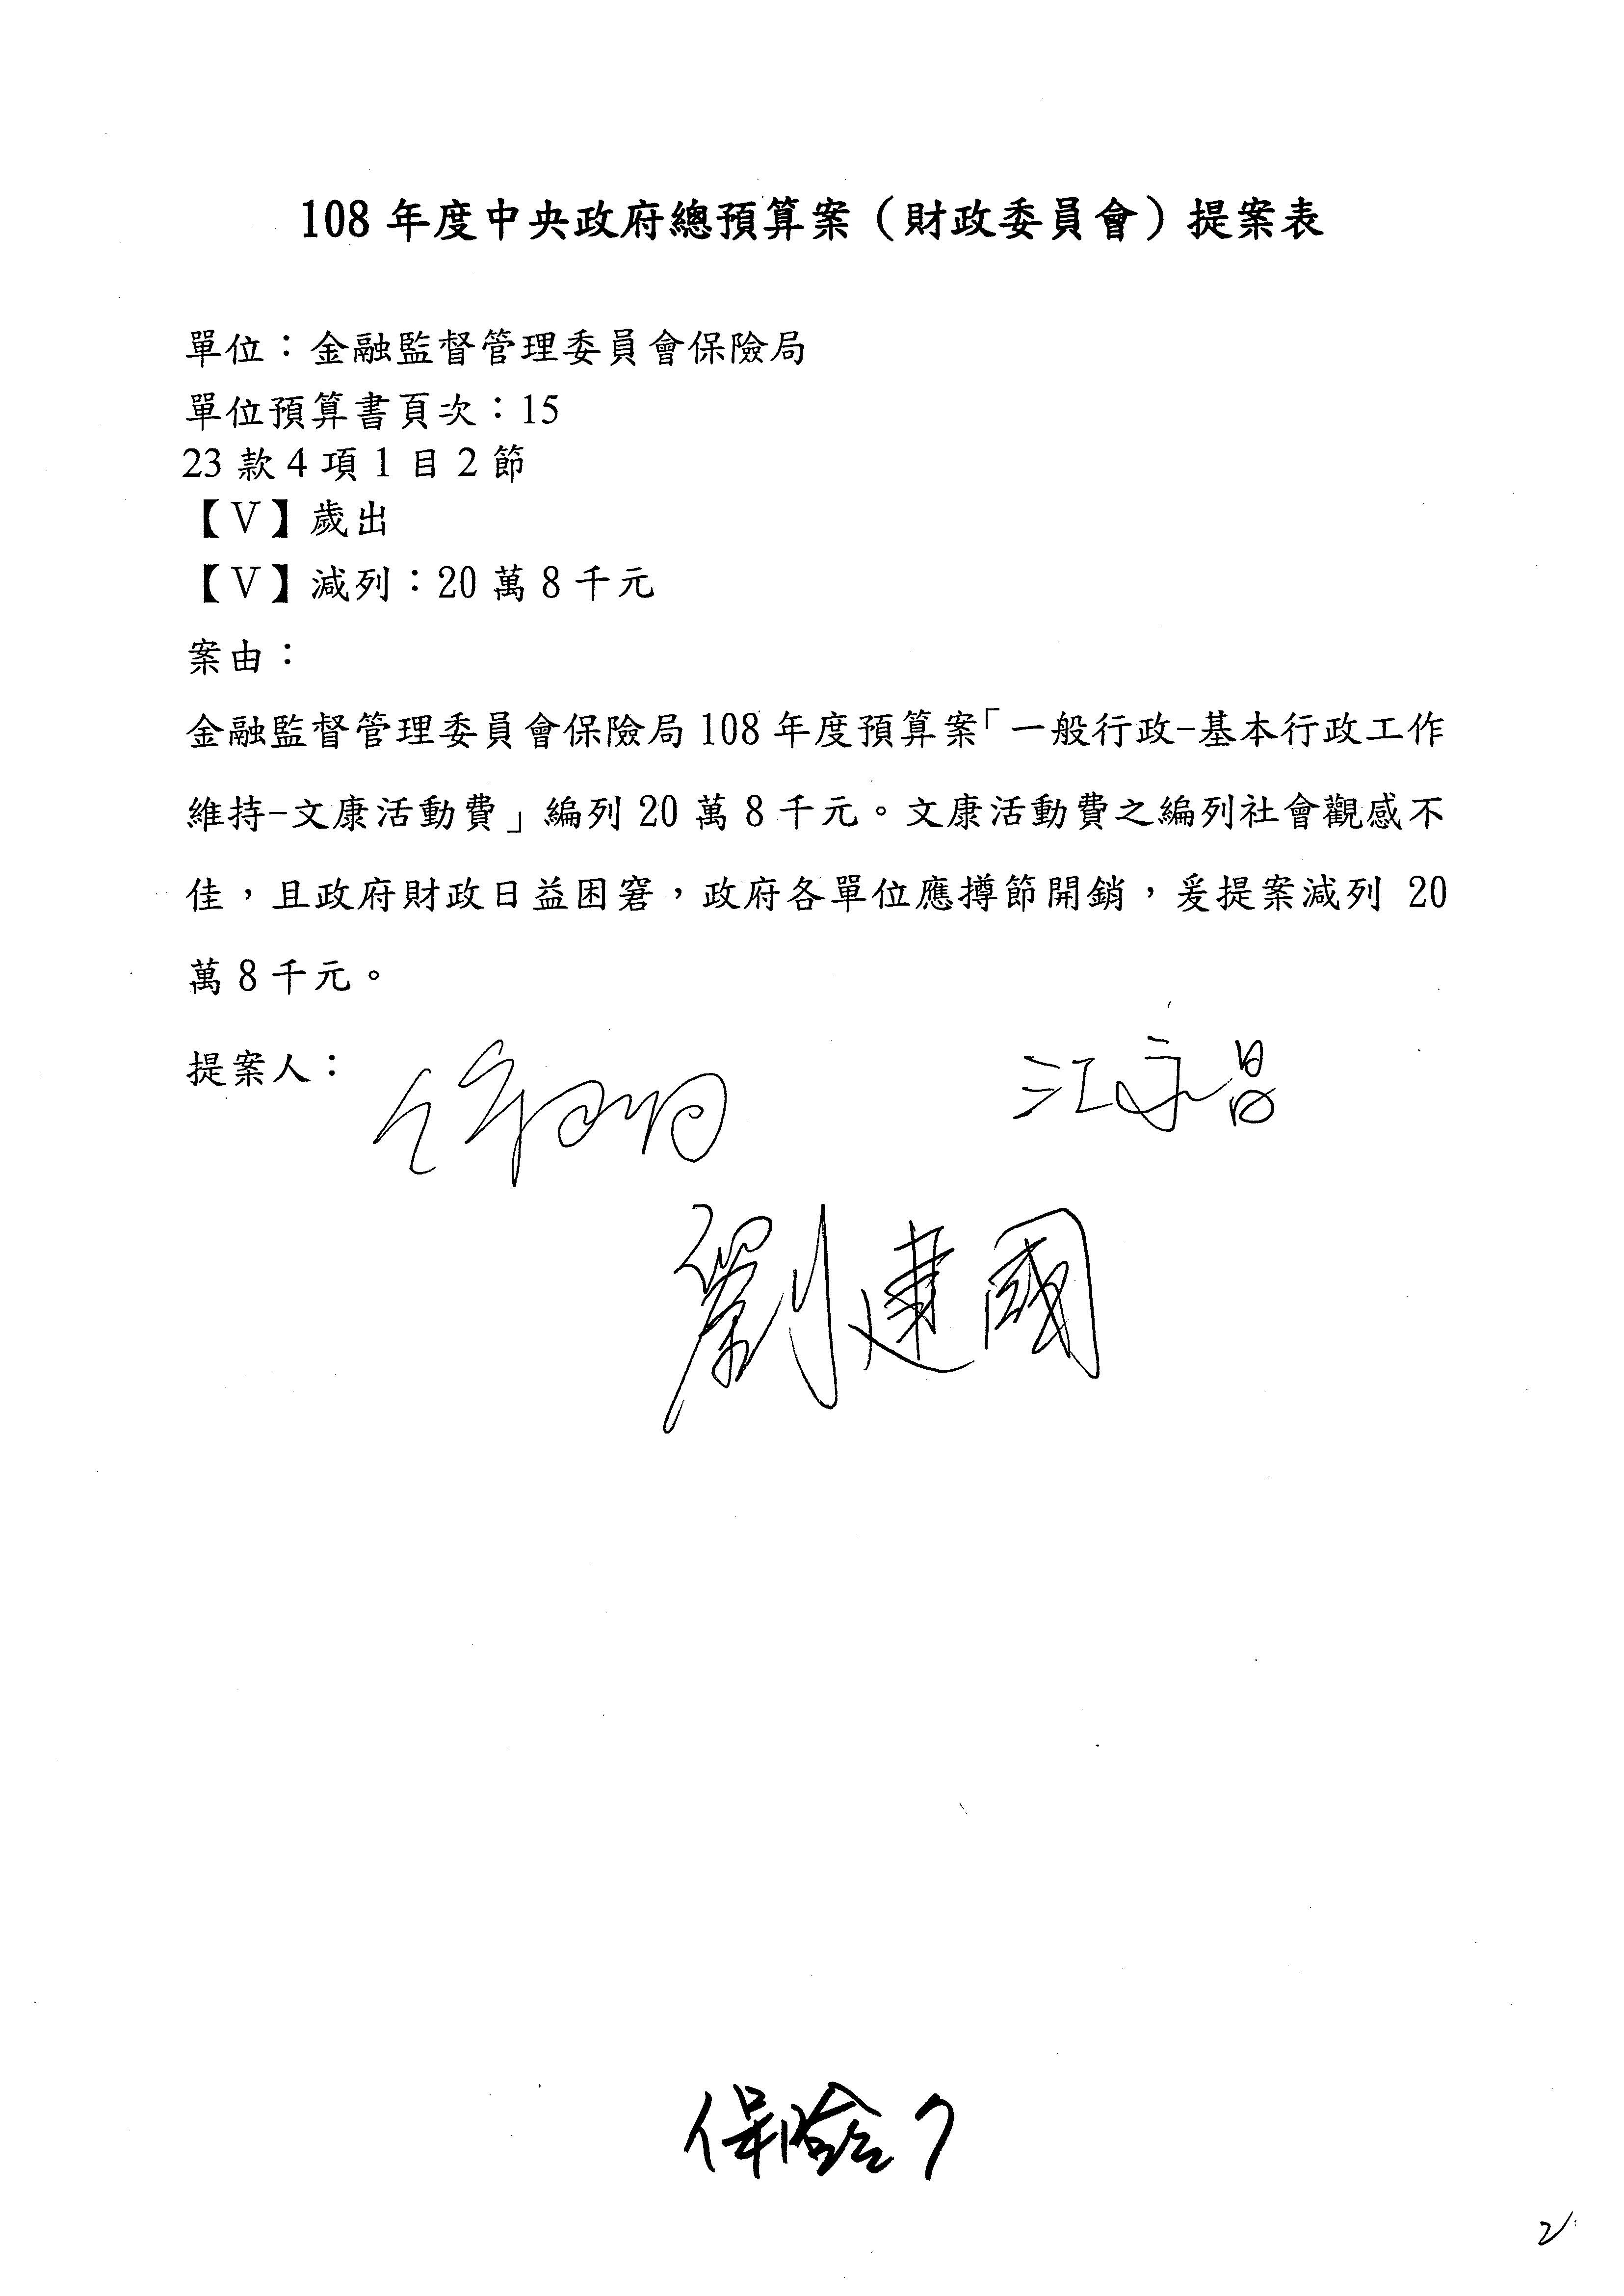 108 年度中央政府總預算案（財政委員會）提案表
單位：金融監督管理委員會保險局
單位預算書頁次：15
23 款 4 項 1 目 2 節
【V】歲出
【V】減列：20 萬 8 千元
案由：
金融監督管理委員會保險局 108 年度預算案「一般行政-基本行政工作
維持-文康活動費」編列 20 萬 8 千元。文康活動費之編列社會觀感不
佳，且政府財政日益困窘，政府各單位應撙節開銷，爰提案減列 20
萬 8 千元。
提案人：
江永昌
劉建國
保險 7